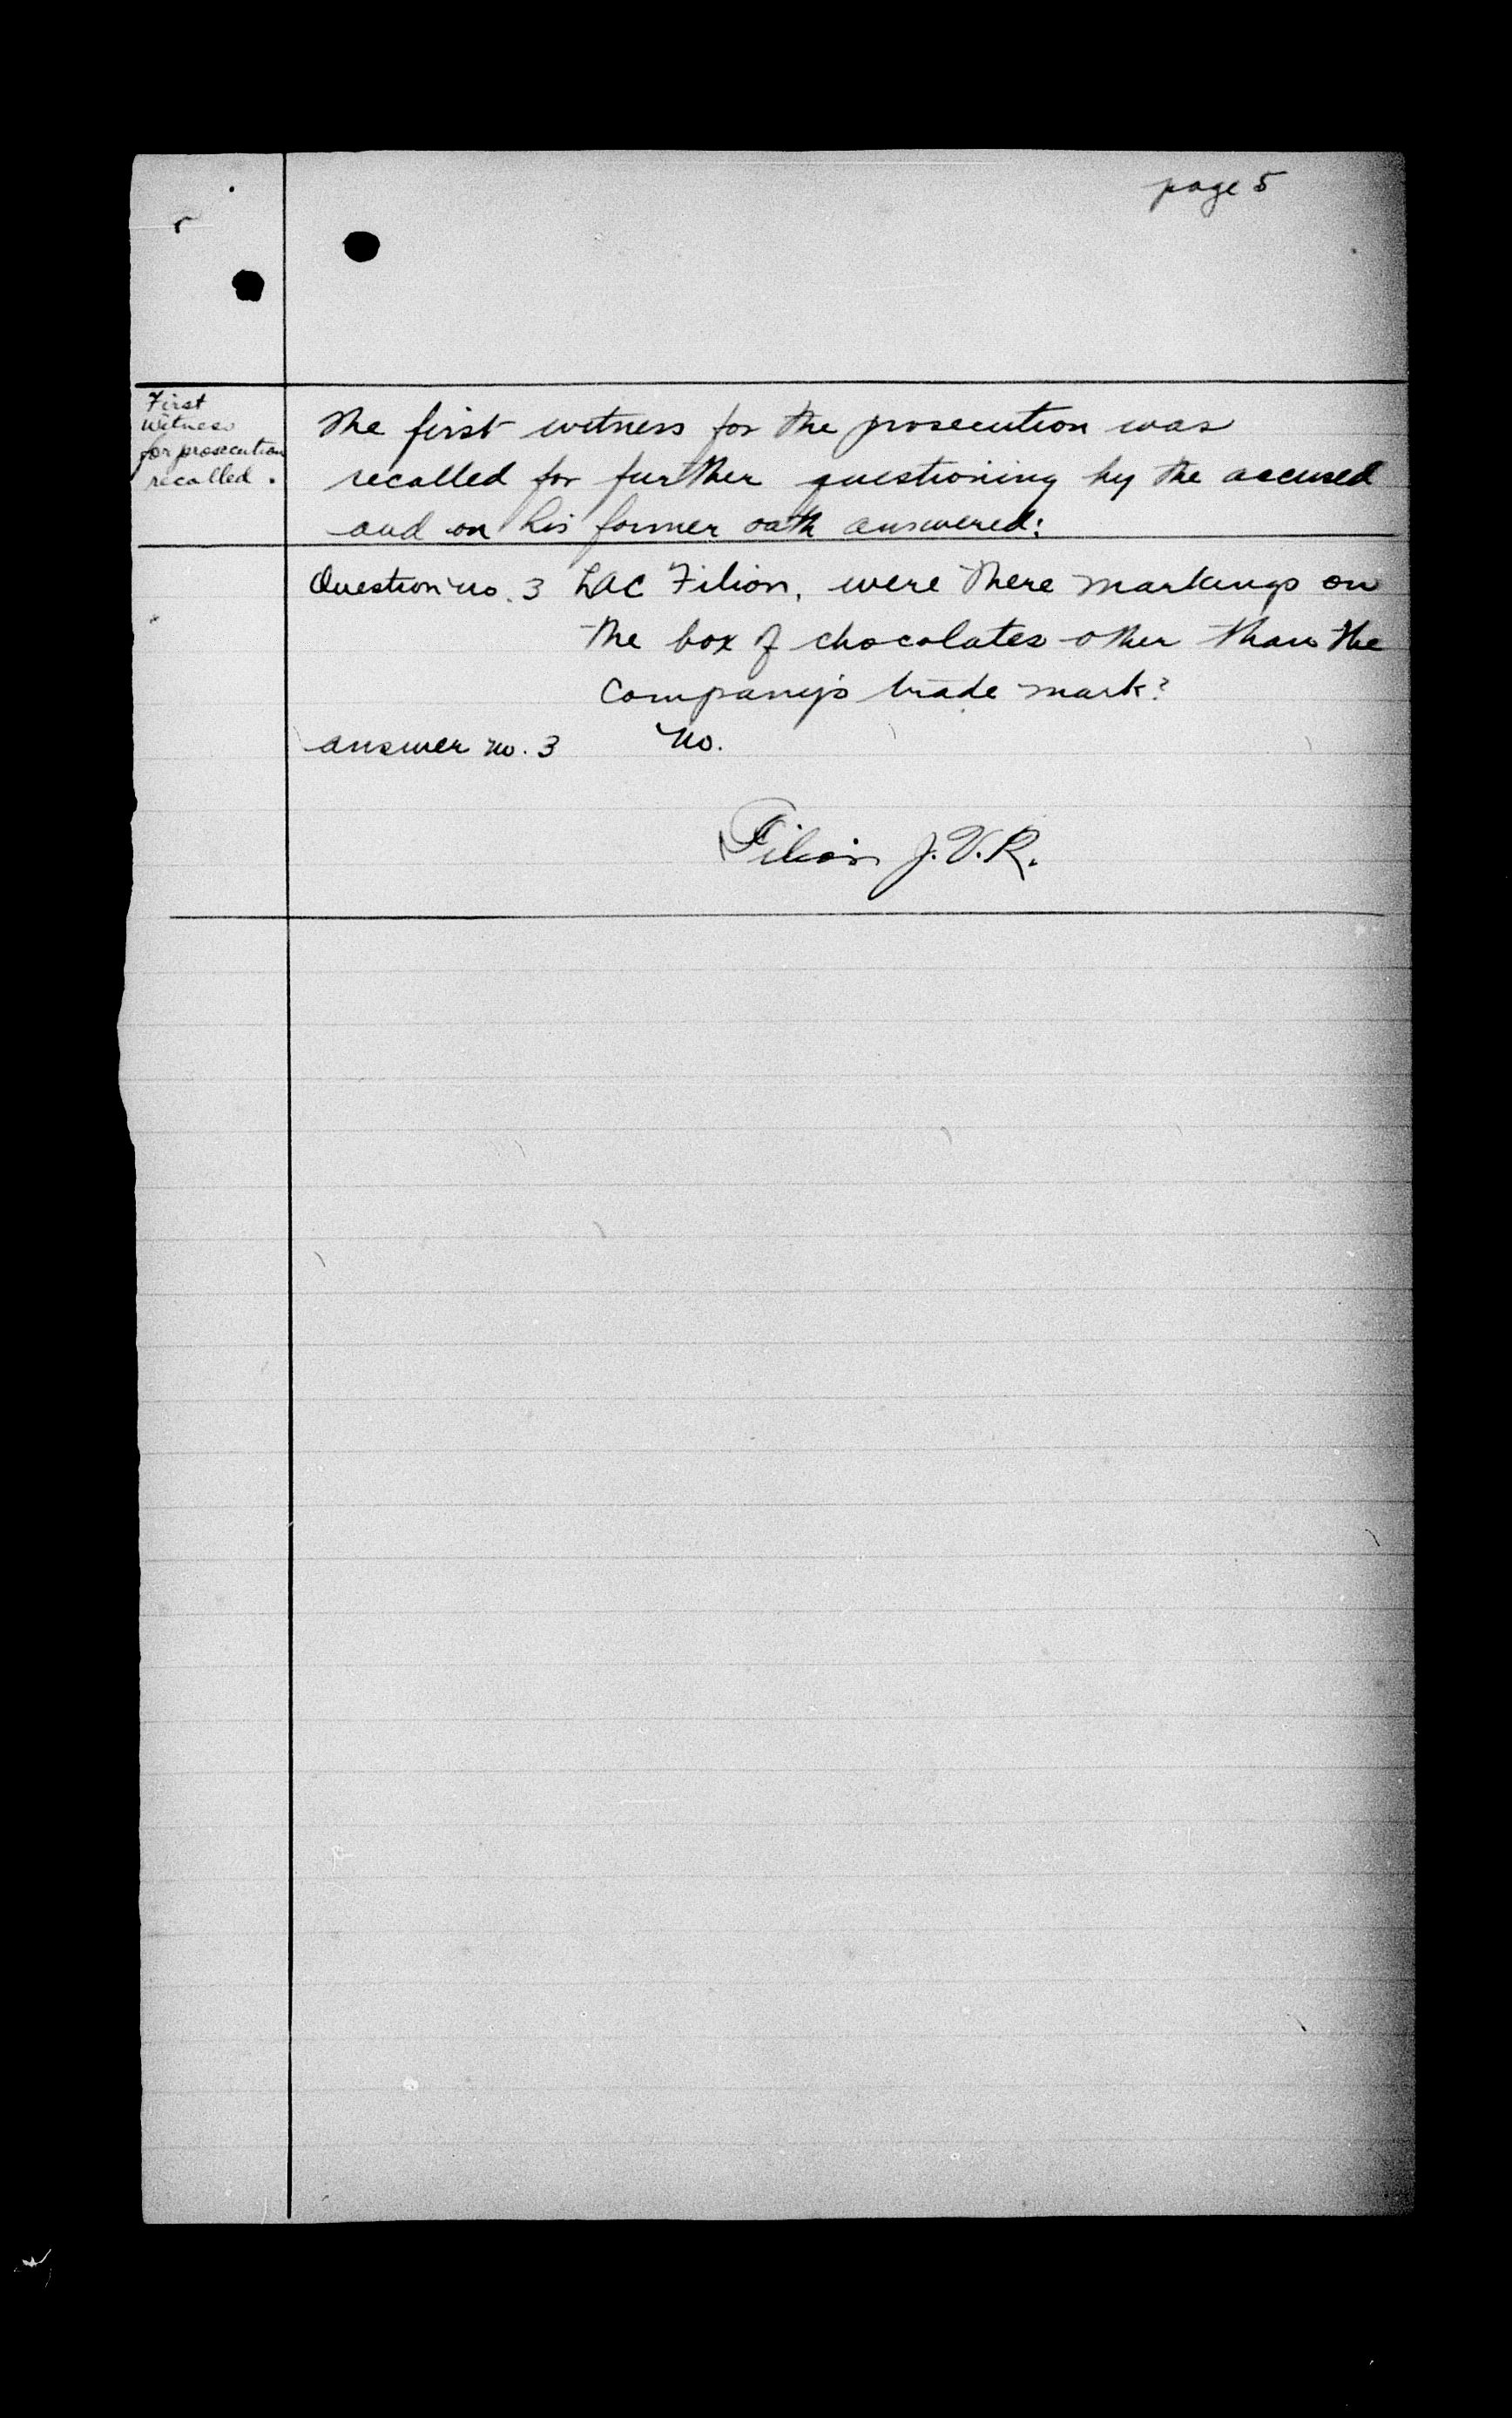 page 5
First
witness
for prosecution
recalled.
The first witness for the prosecution was
recalled for further questioning by the accused
and on his former oath answered:
Question no. 3 LAC Filion, were there markings on
the box of chocolates other than the
Company's trade mark?
answer no. 3 No.
Filion J.V.R.